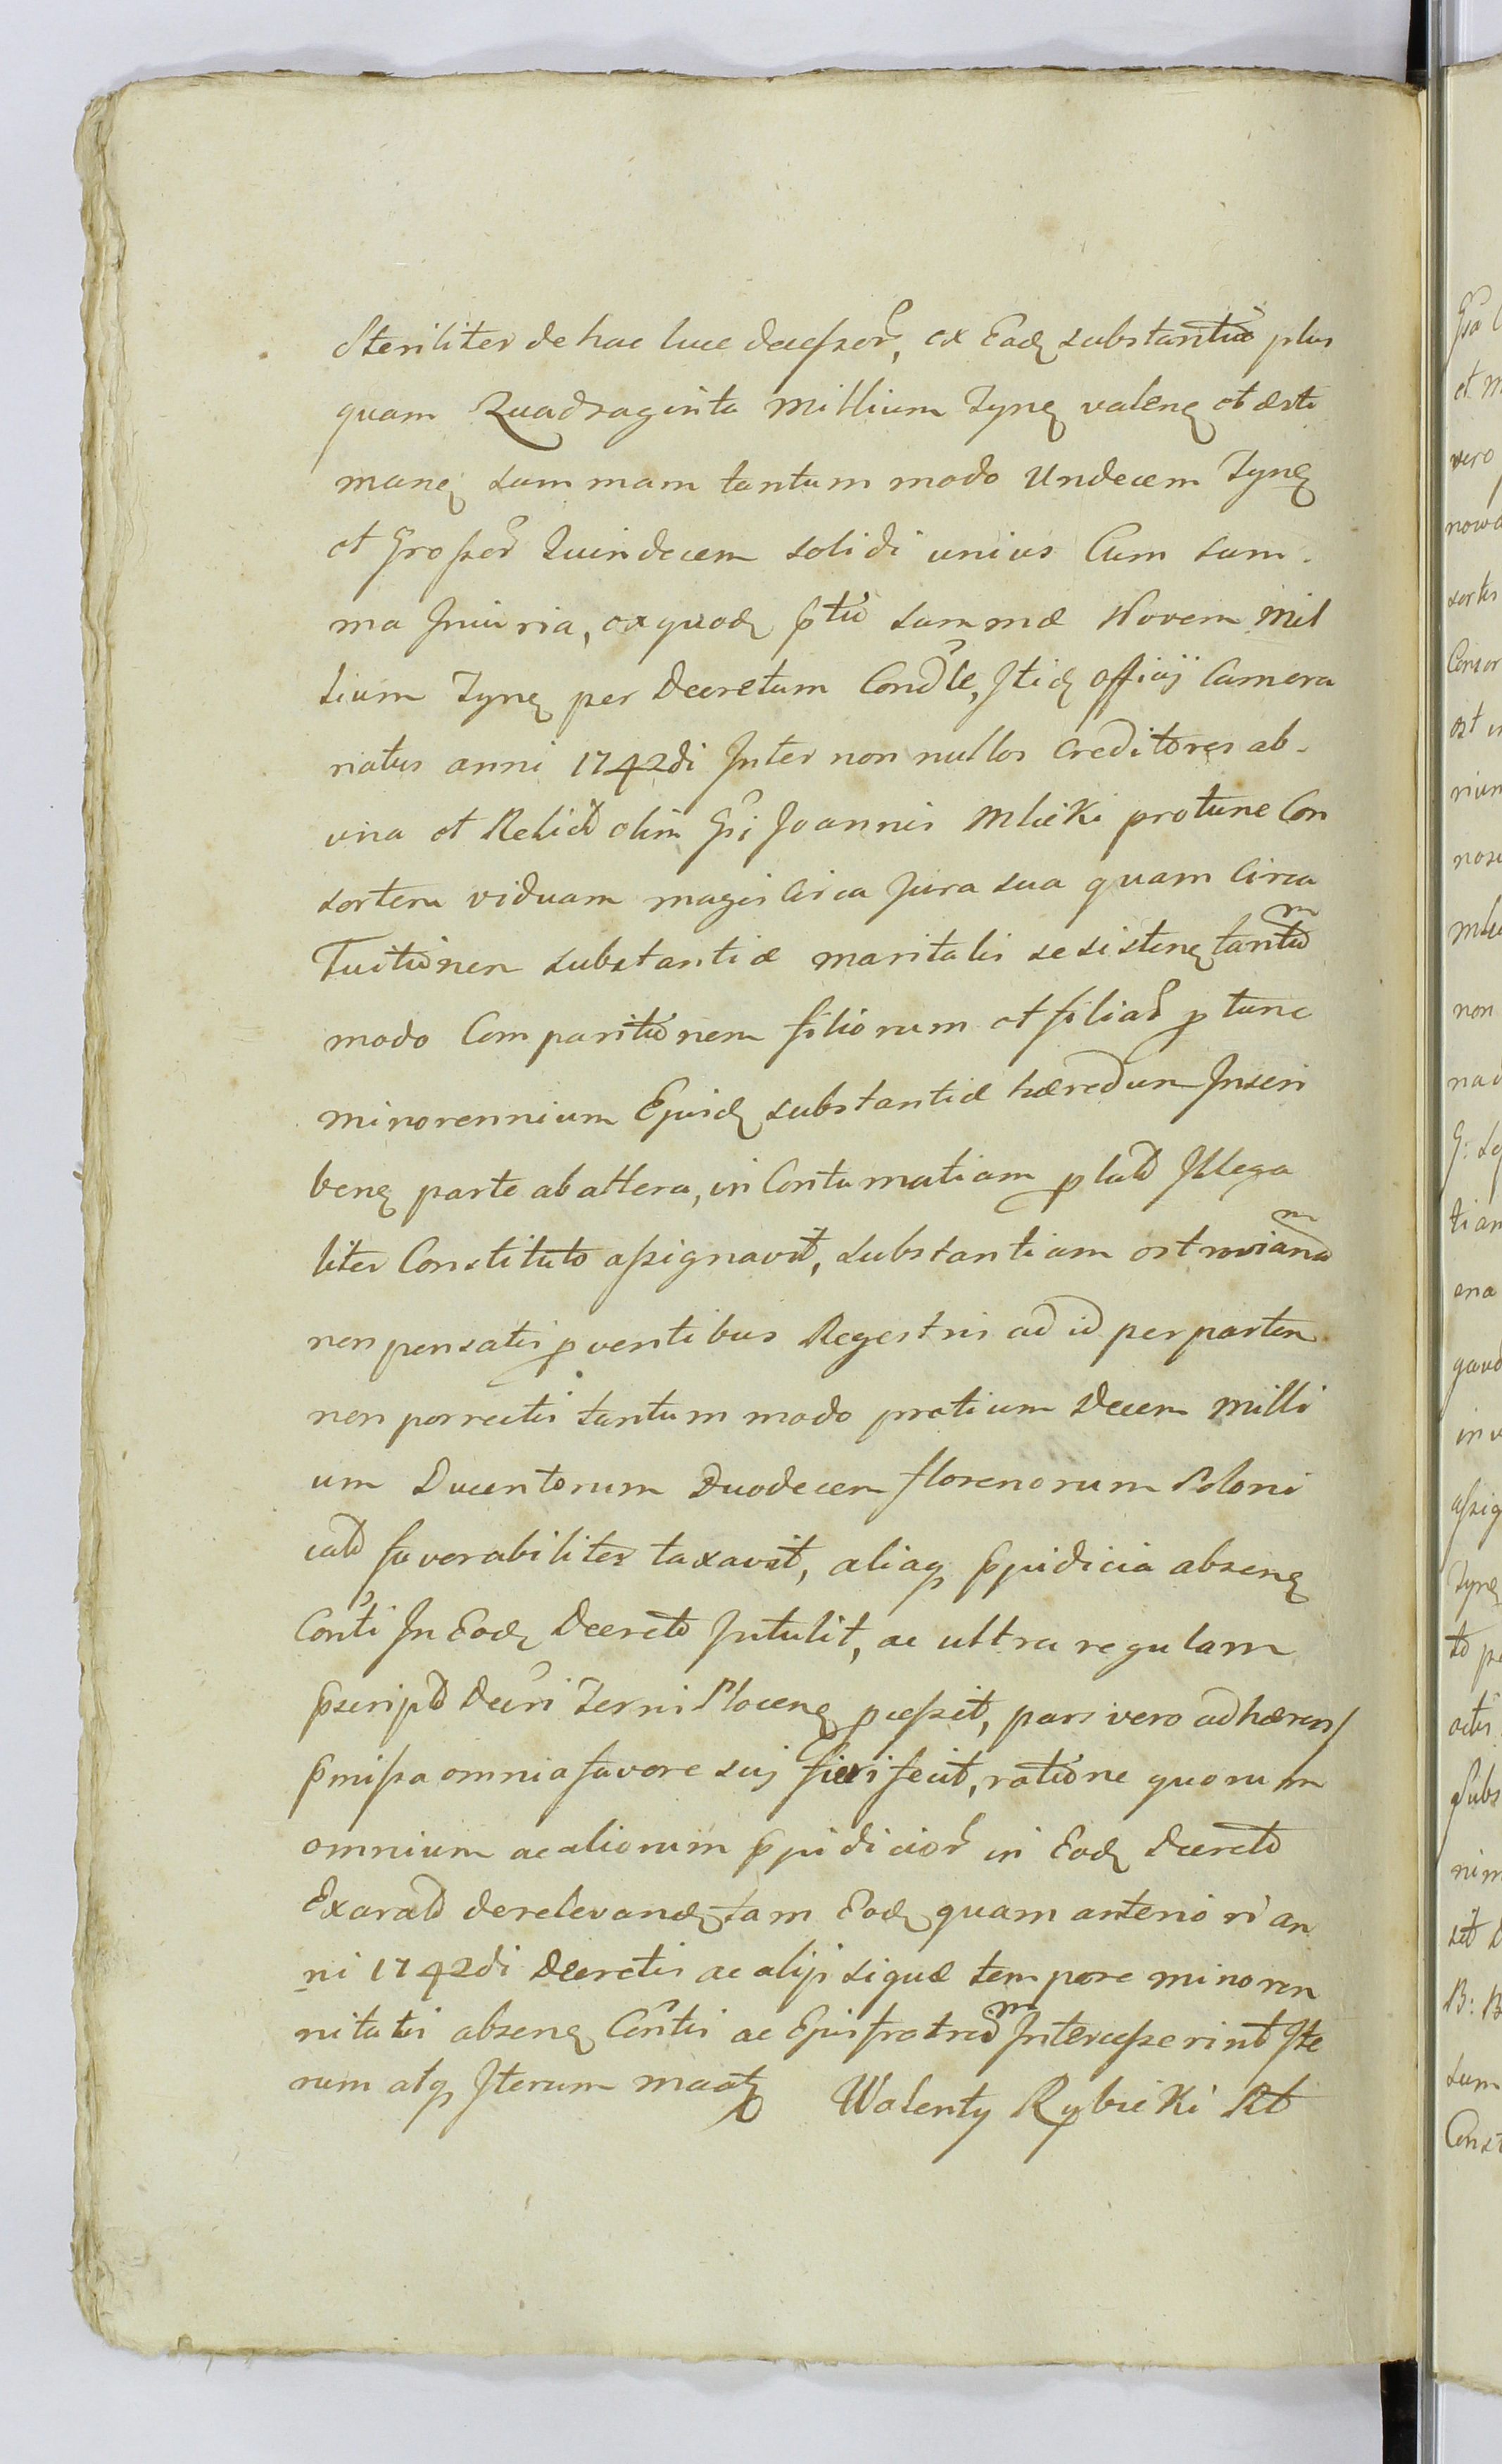 Steriliter de hac luce deceſsor, ex Eadq substantia plus
quam Quadraginta Millium Tynq valenq et æsti
manq summam tantum modo Undecem Tynq
et Groſsor Quindecem solidi unius Cum sum-
ma Iniuria, ex quodq ptio summæ Novem Mil
lium Tynq per Decretum Condle, Itidq Officij Camera
riatus anni 1742di Inter non nullos Creditores ab-
una et Relictā olim Gsi Joannis Mlicki protunc Con
sortem viduam magis circa Jura sua quam Circa
Tuitionem substantiæ maritalis se sistenq tantum
modo Comparitionem filiorum et filiar p tunc
minorennium Ejusdq substantiæ hæredum Inscri
benq parte ab altera, in Contumatiam p lato Illega
liter Constituto aſsignavit, substantiam ostrovianam
non pensatis p ventibus Regestris ad id per partem
non porrectis tantum modo pretium Decem milli
um Ducentorum Duodecem florenorum Poloni
cal favorabiliter taxavit, aliaq ppjudicia absenq
Conti In Eodq Decreto Intulit, ac ultra regulam
pscripto Decri Terris Plocenq p ceſsit, pars vero adhæren/
pmiſsa omnia favore sui fieri fecit, ratione quorum
omnium ac aliorum ppjudicior in Eodq Decreto
Exarato de relevandq tam Eodq quam anteriori an
ni 1742di Decretis ac alijs siquæ tempore minoren
nitatis absenq Contis ac Ejus fratrum Interceſserint Ite
rum atq Iterum
Walenty Rybicki Rt